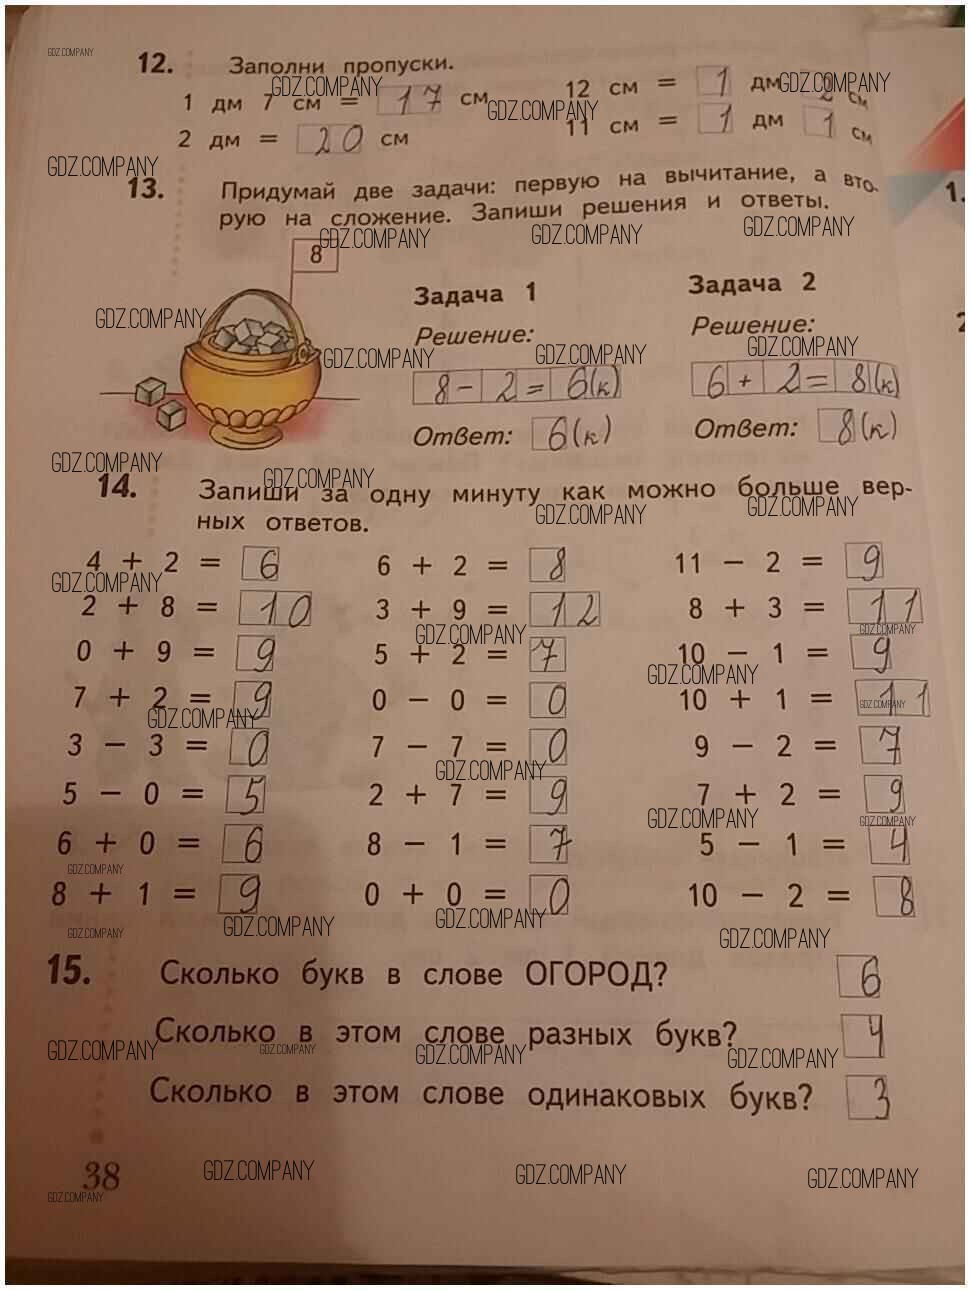 GDZ.COMPANY
12. Заполни пропуски.
GDZ.COMPANY GDZ.COMPANY
1 дм 7 см = 17 см 12 см = 1 дм 2 см
GDZ.COMPANY
2 дм = 20 см 11 см = 1 дм 1 см
GDZ.COMPANY
13. Придумай две задачи: первую на вычитание, а вто-
рую на сложение. Запиши решения и ответы.
GDZ.COMPANY GDZ.COMPANY GDZ.COMPANY
8
Задача 1 Задача 2
GDZ.COMPANY
Решение: Решение:
GDZ.COMPANY GDZ.COMPANY GDZ.COMPANY
8 - 2 = 6(к) 6 + 2 = 8(к)
Ответ: 6(к) Ответ: 8(к)
GDZ.COMPANY GDZ.COMPANY
14. Запиши за одну минуту как можно больше вер-
ных ответов.
GDZ.COMPANY GDZ.COMPANY
4 + 2 = 6 6 + 2 = 8 11 - 2 = 9
GDZ.COMPANY
2 + 8 = 10 3 + 9 = 12 8 + 3 = 11
GDZ.COMPANY GDZ.COMPANY
0 + 9 = 9 5 + 2 = 7 10 - 1 = 9
GDZ.COMPANY
7 + 2 = 9 0 - 0 = 0 10 + 1 = 11
GDZ.COMPANY GDZ.COMPANY
3 - 3 = 0 7 - 7 = 0 9 - 2 = 7
GDZ.COMPANY
5 - 0 = 5 2 + 7 = 9 7 + 2 = 9
GDZ.COMPANY GDZ.COMPANY
6 + 0 = 6 8 - 1 = 7 5 - 1 = 4
GDZ.COMPANY
8 + 1 = 9 0 + 0 = 0 10 - 2 = 8
GDZ.COMPANY GDZ.COMPANY GDZ.COMPANY GDZ.COMPANY
15. Сколько букв в слове ОГОРОД? 6
Сколько в этом слове разных букв? 4
GDZ.COMPANY GDZ.COMPANY GDZ.COMPANY GDZ.COMPANY
Сколько в этом слове одинаковых букв? 3
38
GDZ.COMPANY GDZ.COMPANY GDZ.COMPANY
GDZ.COMPANY
1.
2